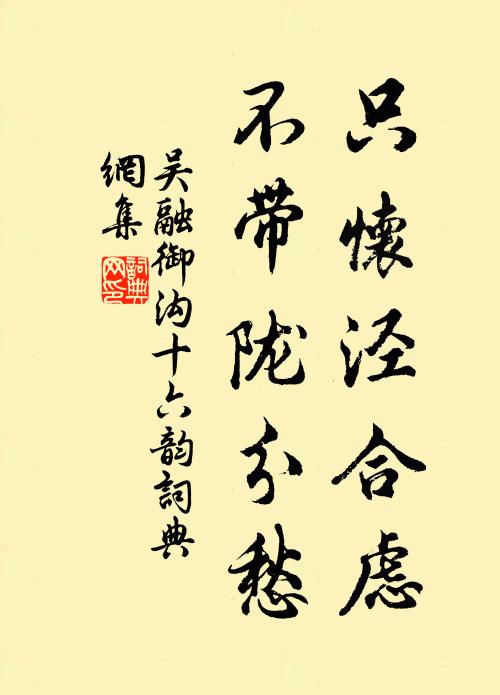 只懷泾合虑
不带陇分愁
吴融御沟十六韵詞典
網集
詞典網印